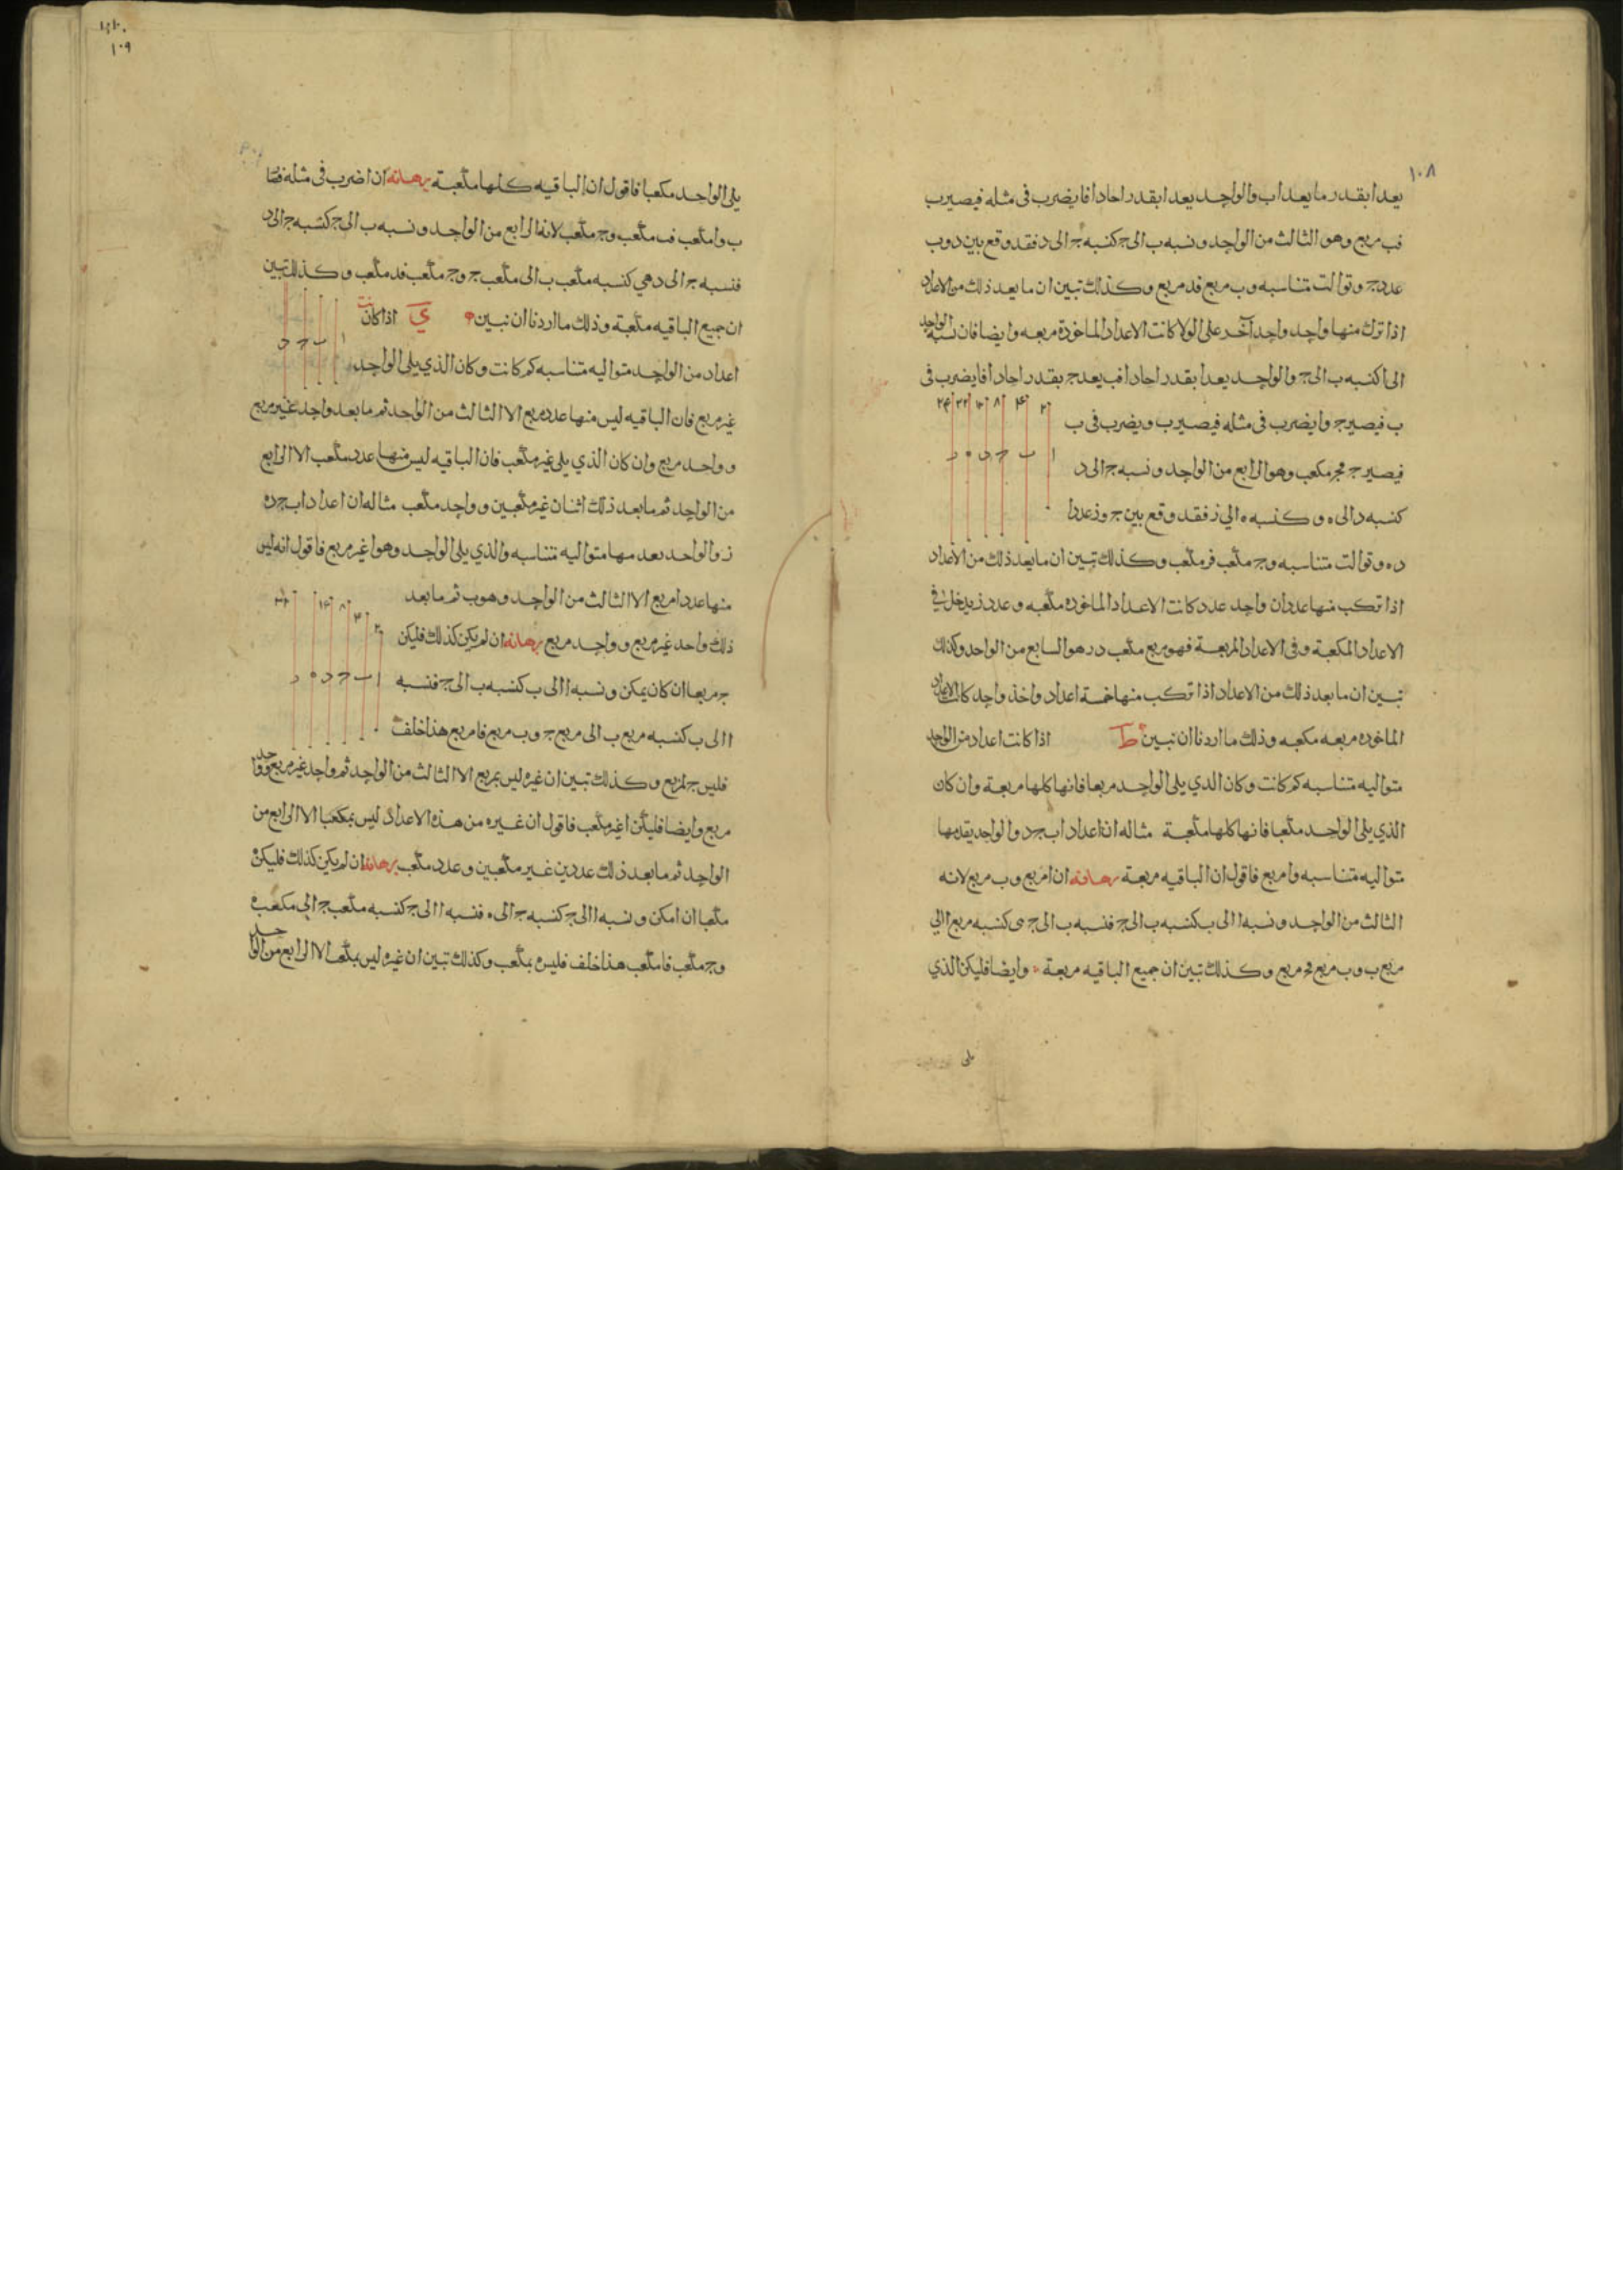 ١٠٨
يعد ا بقدر ما يعد ا ب والواحد يعد ا بقدر احاد ا فا يضرب فى مثله فيصير ب
فب مربع وهو الثالث من الواحد ونسبه ب الى ج كنسبه ج الى د فقد وقع بين د وب
عدد ج وتوالت متناسبه وب مربع فد مربع وكذلك تبين ان ما يعد ذلك من الاعداد
اذا ترك منها واحد واحد آخر على الولا كانت الاعداد الماخوذة مربعه وايضا فان نسبه الواحد
الى ا كنسبه ب الى ج والواحد يعد ا بقدر احاد ا فب يعد ج بقدر احاد ا فا يضرب فى
ب فيصير ج وا يضرب فى مثله فيصير ب ويضرب فى ب
فيصير ج فج مكعب وهو الرابع من الواحد ونسبه ج الى د
كنسبه د الى ه وكنسبه ه الى ز فقد وقع بين ج وز عددا
د ه وتوالت متناسبه وج مكعب فز مكعب وكذلك تبين ان ما يعد ذلك من الاعداد
اذا تكب منها عددان واحد عدد كانت الاعداد الماخوذه مكعبه وعدد ز يدخل فى
الاعداد المكعبة وفى الاعداد المربعة فهو مربع مكعب وهو السابع من الواحد وكذلك
تبين ان ما بعد ذلك من الاعداد اذا تكب منها خمسة اعداد واخذ واحد كانت الاعداد
الماخوذه مربعه مكعبه وذلك ما اردنا ان نبين ط اذا كانت اعداد من الواحد
متواليه متناسبه كم كانت وكان الذي يلى الواحد مربعا فانها كلها مربعة وان كان
الذي يلى الواحد مكعبا فانها كلها مكعبة مثاله ان اعداد ا ب ج د والواحد يقدمها
متواليه متناسبه وا مربع فاقول ان الباقيه مربعة برهانه ان ا مربع وب مربع لانه
الثالث من الواحد ونسبه ا الى ب كنسبه ب الى ج فنسبه ب الى ج هى كنسبه مربع ا الى
مربع ب وب مربع فج مربع وكذلك تبين ان جميع الباقيه مربعة وايضا فليكن الذي
يلى
١٠٩
يلى الواحد مكعبا فاقول ان الباقيه كلها مكعبة برهانه ان ا ضرب فى مثله فصا
ب وا مكعب فب مكعب وج مكعب لانه الرابع من الواحد ونسبه ب الى ج كنسبه ج الى د
فنسبه ج الى د هي كنسبه مكعب ب الى مكعب ج وج مكعب فد مكعب وكذلك تبين
ان جميع الباقيه مكعبة وذلك ما اردنا ان نبين ي اذا كانت
اعداد من الواحد متواليه متناسبه كم كانت وكان الذي يلى الواحد
غير مربع فان الباقيه ليس منها عدد مربع الا الثالث من الواحد ثم ما بعد واحد غير مربع
وواحد مربع وان كان الذي يلى غير مكعب فان الباقيه ليس منها عدد مكعب الا الرابع
من الواحد ثم ما بعد ذلك اثنان غير مكعبين وواحد مكعب مثاله ان اعداد ا ب ج د ه
ز والواحد يعد مها متواليه متناسبه والذي يلى الواحد وهو ا غير مربع فاقول انه ليس
منها عدد امربع الا الثالث من الواحد وهو ب ثم ما بعد
ذلك واحد غير مربع وواحد مربع برهانه ان لم يكن كذلك فليكن
ج مربعا ان كان يمكن ونسبه ا الى ب كنسبه ب الى ج فنسبه
ا الى ب كنسبه مربع ب الى مربع ج وب مربع فا مربع هذا خلف
فليس ج بمربع وكذلك تبين ان غيره ليس بمربع الا الثالث من الواحد ثم واحد غير مربع وواحد
مربع وايضا فليكن ا غير مكعب فاقول ان غيره من هذه الاعداد ليس بمكعب الا الرابع من
الواحد ثم ما بعد ذلك عددين غير مكعبين وعدد مكعب برهانه ان لم يكن كذلك فليكن ه
مكعبا ان امكن ونسبه ا الى ج كنسبه ج الى ه فنسبه ا الى ج كنسبه مكعب ج الى مكعب ه
وج مكعب فا مكعب هذا خلف فليس ه بمكعب وكذلك تبين ان غيره ليس بمكعب الا الرابع من الواحد